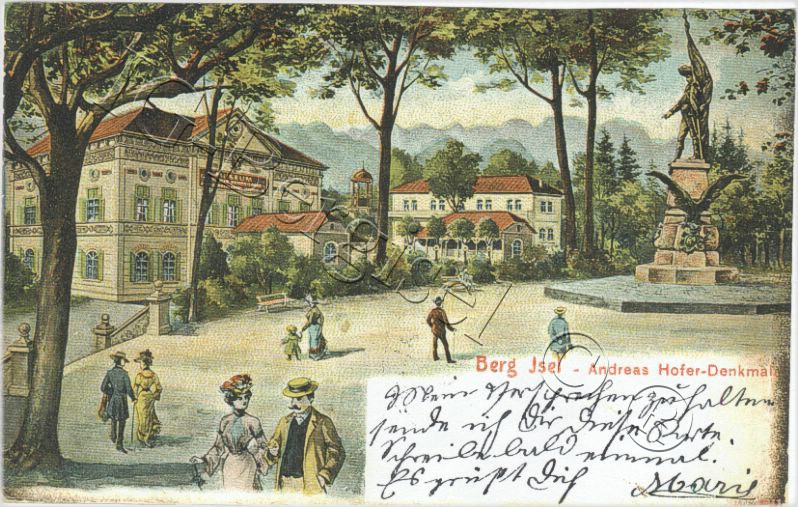 Berg Isel - Andreas Hofer-Denkmal
Meine Versprechen zu halten
sende ich Dir diese Karte.
Schreibe bald einmal.
Es grüßt Dich Marie